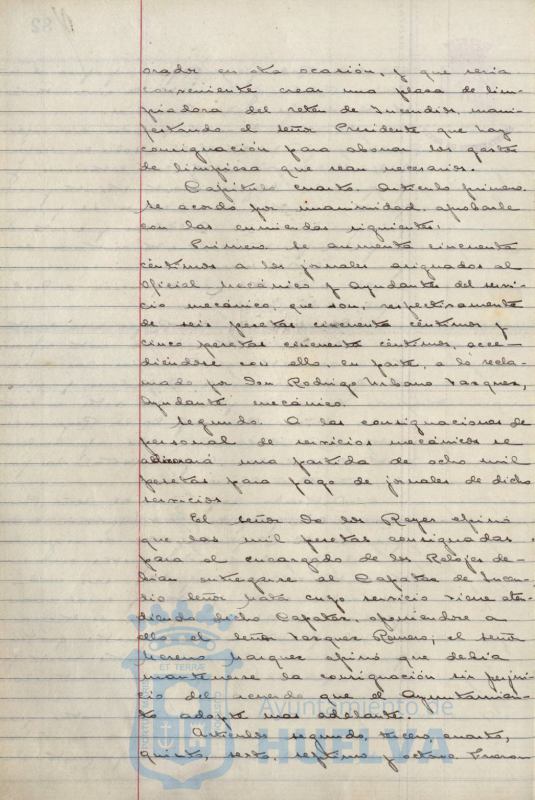 orador en otra ocasión, y que sería
conveniente crear una plaza de lim-
piadora del retén de Incendios, mani-
festando el señor Presidente que hay
consignación para abonar los gastos
de limpieza que sean necesarios.
Capítulo cuarto. Artículo primero.
Se acordó por unanimidad aprobarle
con las enmiendas siguientes:
Primero. Se aumenta cincuenta
céntimos a los jornales asignados al
Oficial Mecánico y Ayudantes del servi-
cio mecánico, que son, respectivamente
de seis pesetas cincuenta céntimos y
cinco pesetas cincuenta céntimos, acce-
diéndose con ello, en parte, a lo recla-
mado por Don Rodrigo Urbano Vazquez,
Ayudante mecánico.
Segundo. A las consignaciones de
personal de servicios mecánicos se
una partida de ocho mil
pesetas para pago de jornales de dicho
servicios.
El señor de los Reyes opinó
que las mil pesetas consignadas
para el encargado de los Relojes de-
bían entregarse al Capataz de Incen-
dio Señor Mata cuyo servicio viene aten-
diendo dicho Capataz, oponiendose a
ello el Señor Vazquez Romero; el señor
Moreno Marquez opinó que debía
mantenerse la consignación sin perjui-
cio del acuerdo que el Ayuntamien-
to adopte mas adelante.
Artículos segundo, tercero, cuarto,
quinto, sexto, septimo y octavo. Fueron
Ayuntamiento de
HUELVA